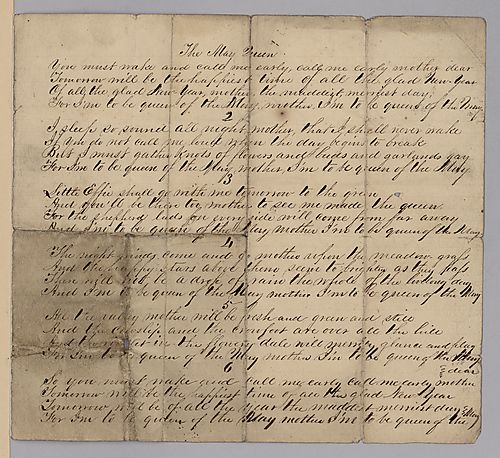 The May Queen
You must wake and call me early, call me early mother dear
Tomorrow will be the happiest time of all the glad New-Year
Of all the glad New Year, mother, the maddest merriest day;
For I'm to be queen of the May, mother, I'm to be queen of the May
2
I sleep so sound all night mother, that I shall never wake
If you do not call me loud when the day begin to break
But I must gather knots of flowers and buds and garlands gay
For I'm to be queen of the May mother, I'm to be queen of the May
3
Little Effie shall go with me tomorrow to the green
And you'll be there too mother to see me made the queen
For the shepherd lads on every side will come from far away
And I'm to be queen of the May mother I'm to be queen of the May
4
The night winds come and go mother upon the meadow grass
And the happy stars above them seem to brighten as they pass
There will not be a drop of rain the whole of the livelong day
And I'm to be queen of the May mother I'm to be queen of the May
5
All the valley mother will be fresh and green and still
And the cowslip and the crowfoot are over all the hill
And the in the flowery dale will merrily glance and play
For I'm to be queen of the May mother I'm to be queen of the May
6
dear
So you must wake and call me early call me early mother
Tomorrow will be the happiest time of all the glad New Year
Tomorrow will be of all the year the maddest merriest day
For I'm to be queen of the May mother I'm to be queen of the May